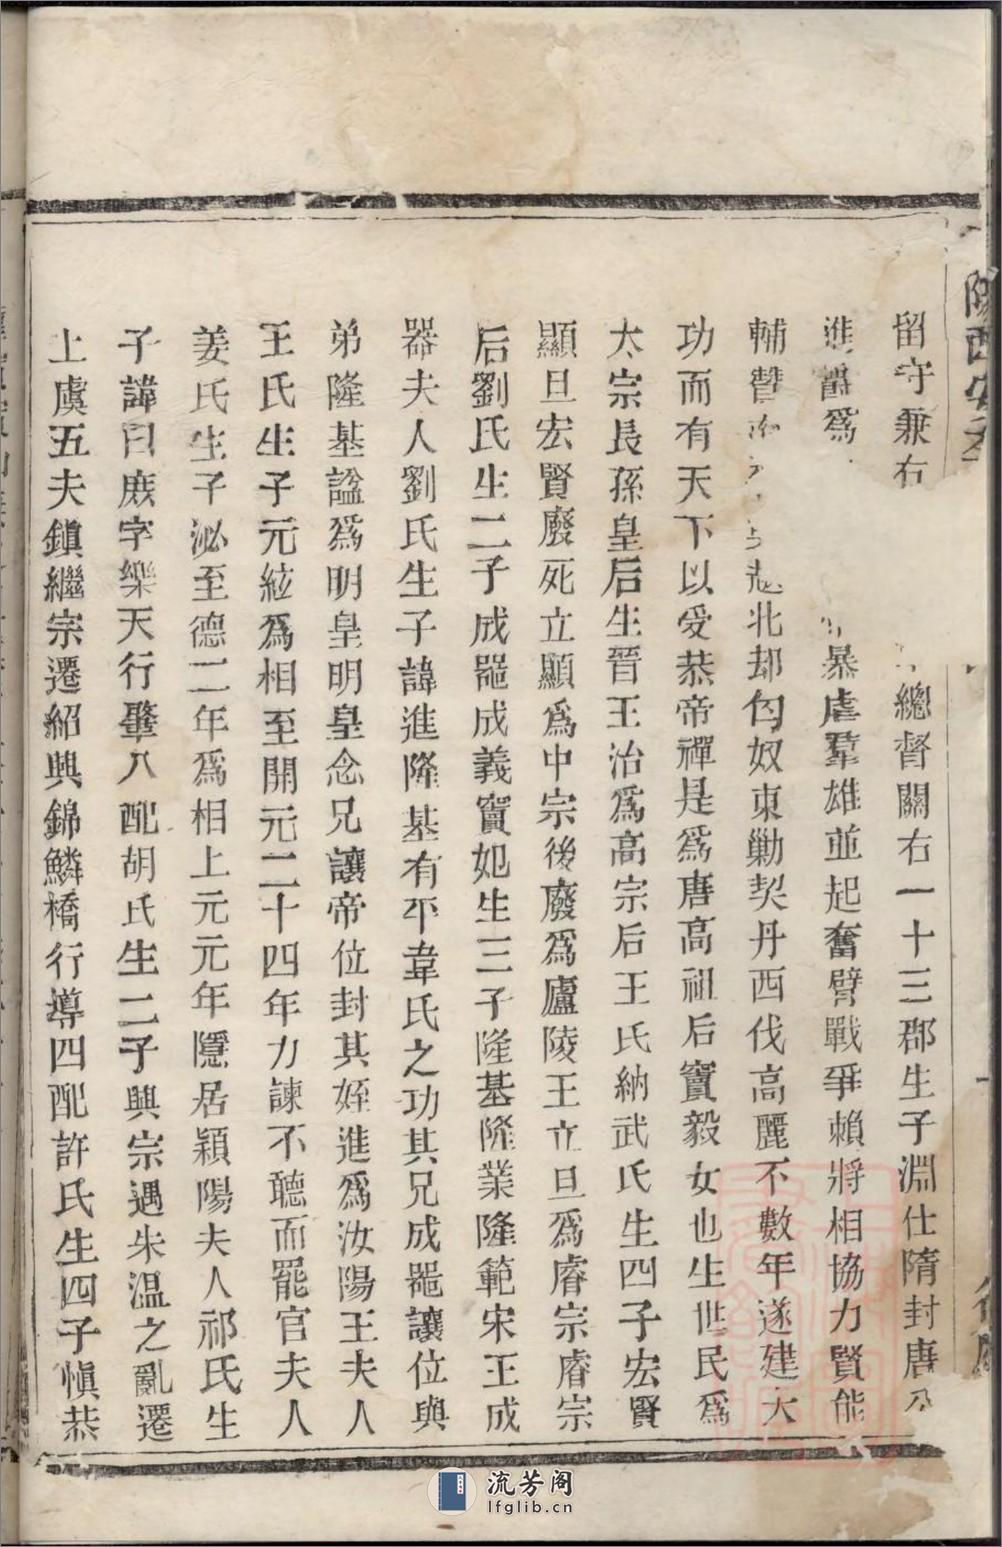 隴西安
留守兼右總督關右一十三郡生子淵仕隋封唐
進爵爲暴虐羣雄並起奮臂戰爭賴將相協力賢能
輔贊北却匈奴東勦契丹西伐高麗不數年遂建大
功而有天下以受恭帝禪是爲唐高祖后竇毅女也生世民爲
太宗長孫皇后生晉王治爲高宗后王氏納武氏生四子宏賢
顯旦宏賢廢死立顯爲中宗後廢爲廬陵王立旦爲睿宗睿宗
后劉氏生二子成噐成義竇妃生三子隆基隆業隆範宋王成
器夫人劉氏生子諱進隆基有平韋氏之功其兄成噐讓位與
弟隆基諡爲明皇明皇念兄讓帝位封其姪進爲汝陽王夫人
王氏生子元紘爲相至開元二十四年力諫不聽而罷官夫人
姜氏生子泌至德二年爲相上元元年隱居穎陽夫人祁氏生
子諱曰庻字樂天行肇八配胡氏生二子興宗遇朱温之亂遷
上虞五夫鎮繼宗遷紹興錦鱗橋行導四配許氏生四子愼恭
流芳阁
lfglib.cn